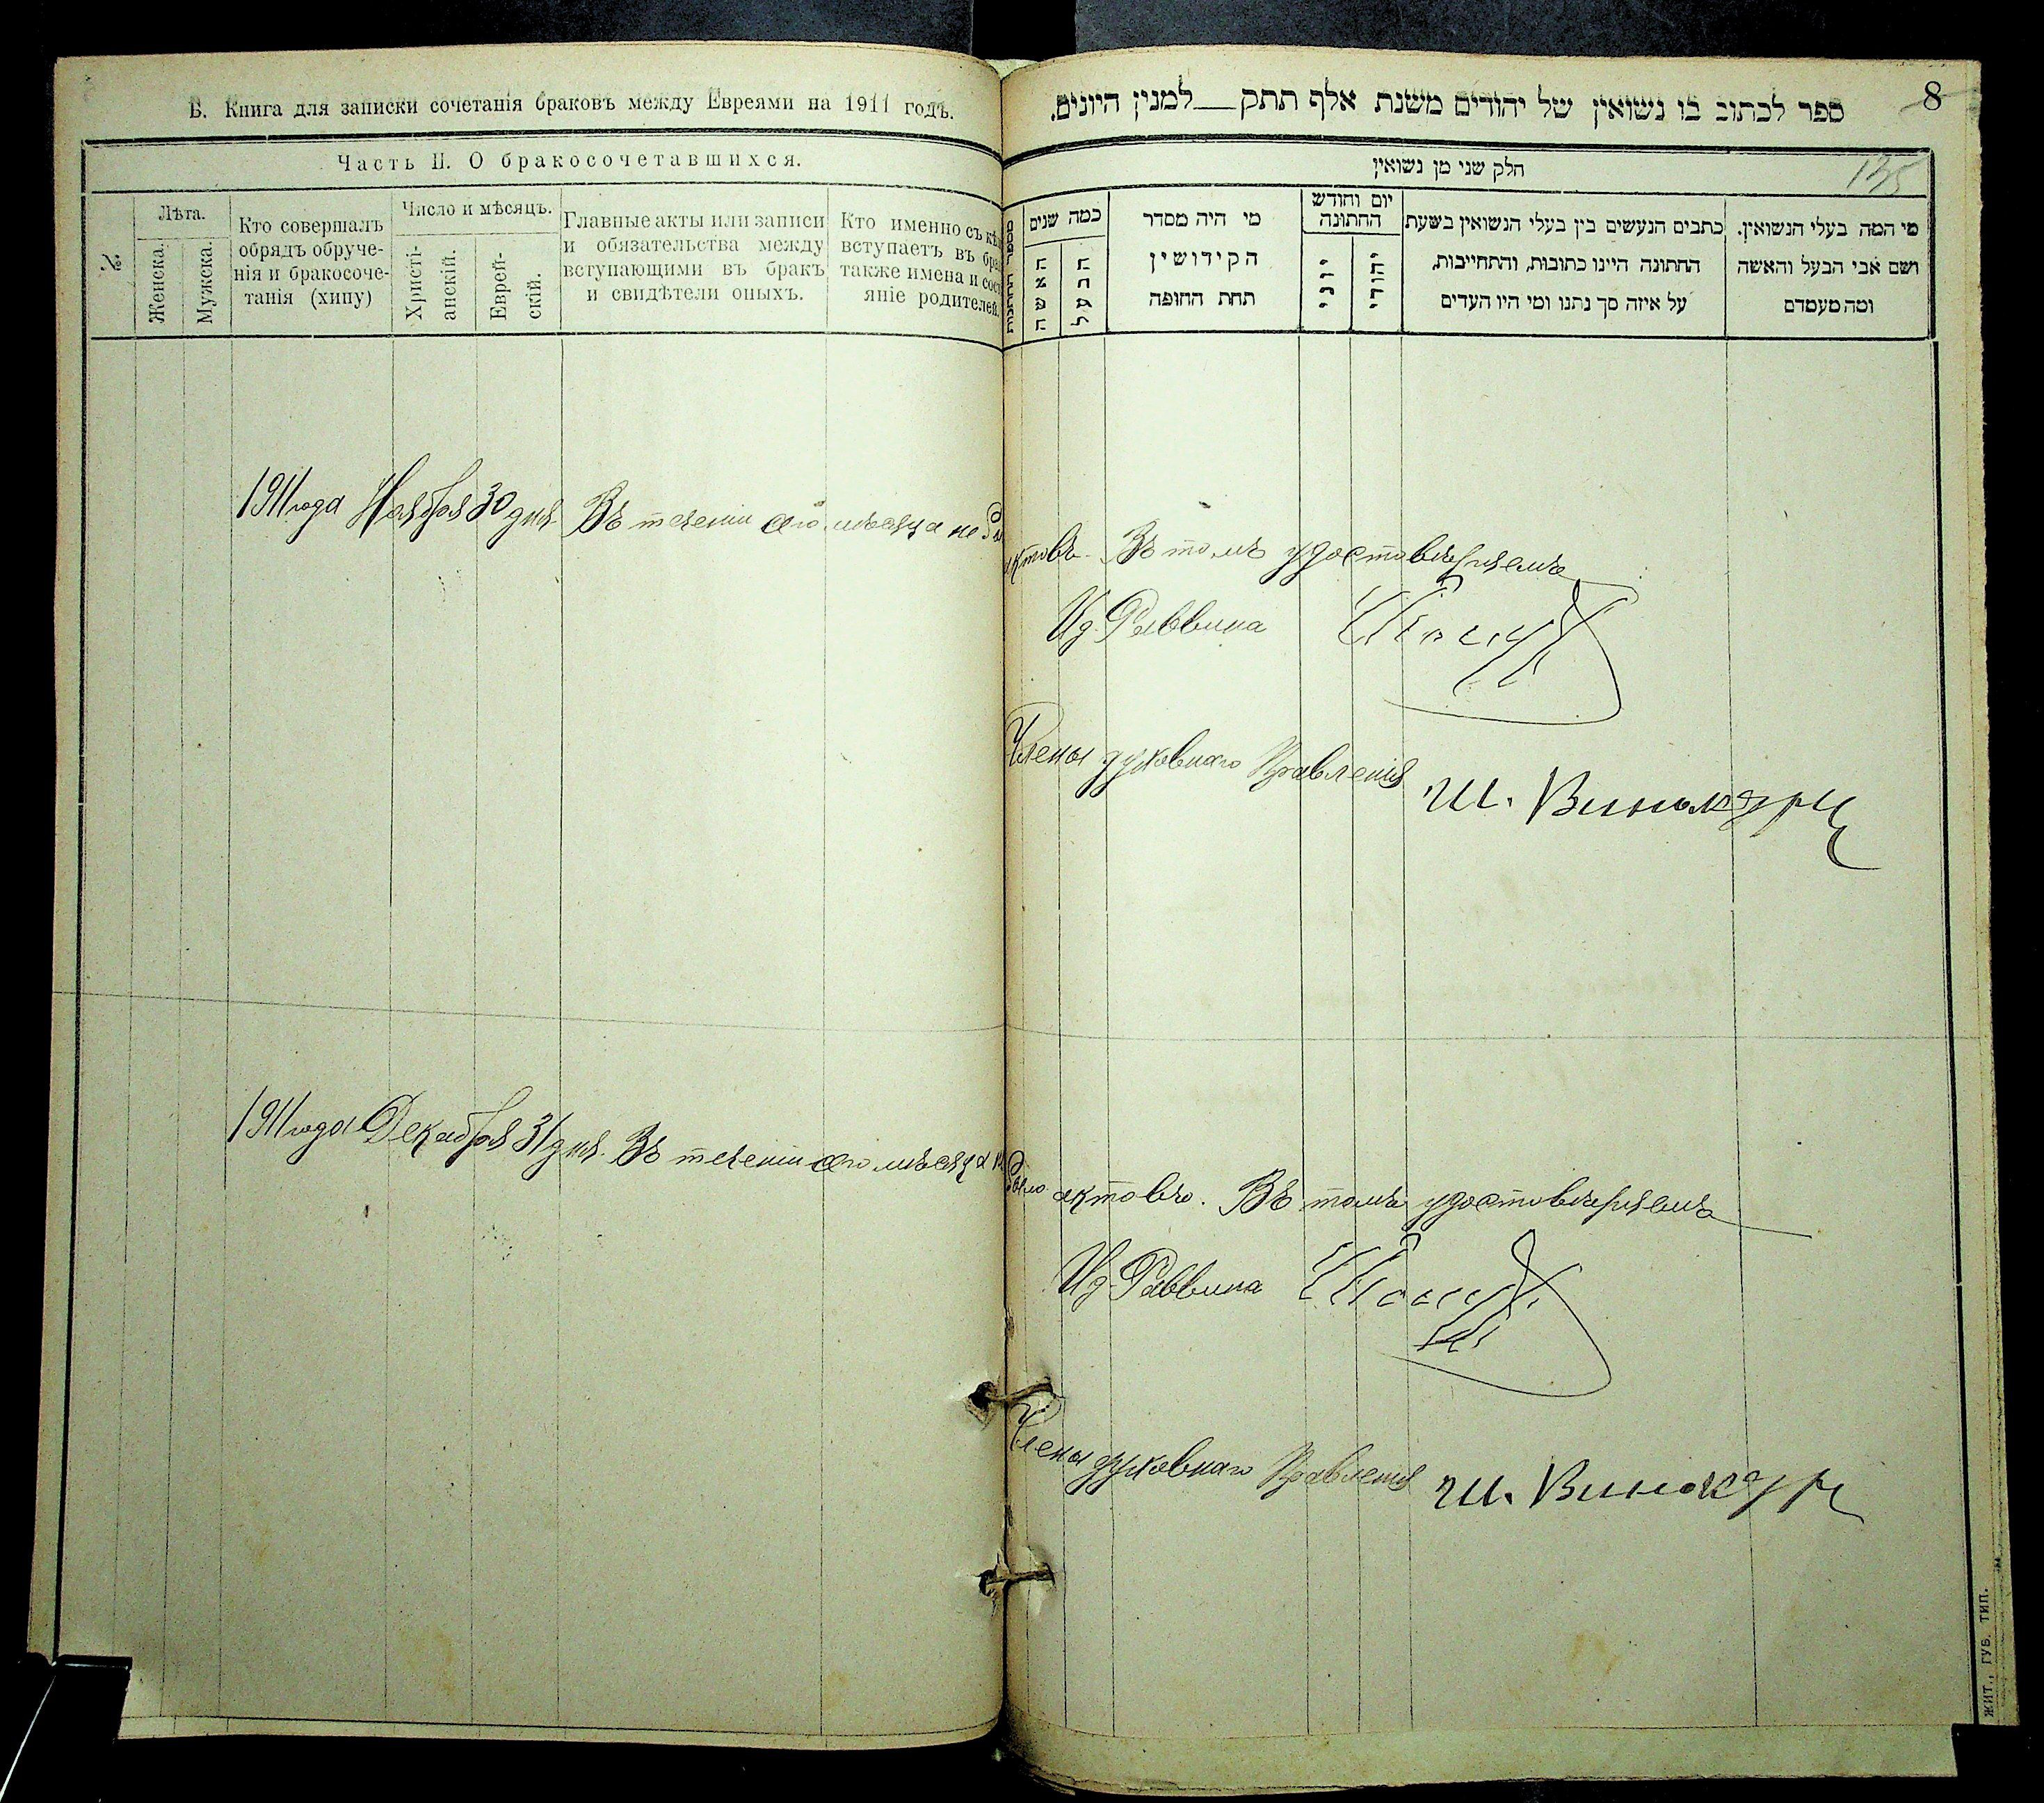 Б. Книга для записки сочетанія браковъ между Евреями на 1911 годъ.
Часть II. О бракосочетавшихся.
№.
Лѣта.
Женска.
Мужска.
Кто совершалъ
обрядъ обруче-
нія и бракосоче-
танія (хипу)
Число и мѣсяцъ.
Христі-
анскій.
Еврей-
скій.
Главные акты или записи
и обязательства между
вступающими въ бракъ
и свидѣтели оныхъ.
Кто именно съ кѣ
вступаетъ въ бра
также имена и сост
яніе родителей.
8
ספר לכתוב בו נשואין של יהודים משנת אלף תתק__למנין היונים.
135
חלק שני מן נשואין
מי המה בעלי הנשואין.
ושם אבי הבעל והאשה
ומה מעמדם
כתבים הנעשים בין בעלי הנשואין בשעת
החתונה היינו כתובות, והתחייבות,
על איזה סך נתנו ומי היו העדים
יום וחודש
החתונה
יהודי
יוני
מי היה מסדר
הקידושין
תחת החופה
כמה שנים
הבעל
האשה
מספר החתונות
1911 года Ноября 30 дня. Въ теченіи сего мѣсяца не бы
актовъ. Въ томъ удостовѣряемъ
Ид. Раввина
Члены духовнаго Правленія Ш. Винокуръ
1911 года Декабря 31 дня. Въ теченіи сего мѣсяца н
было актовъ. Въ томъ удостовѣряемъ
Ид. Раввина
Члены духовнаго Правленія Ш. Винокуръ
ЖИТ., ГУБ. ТИП.